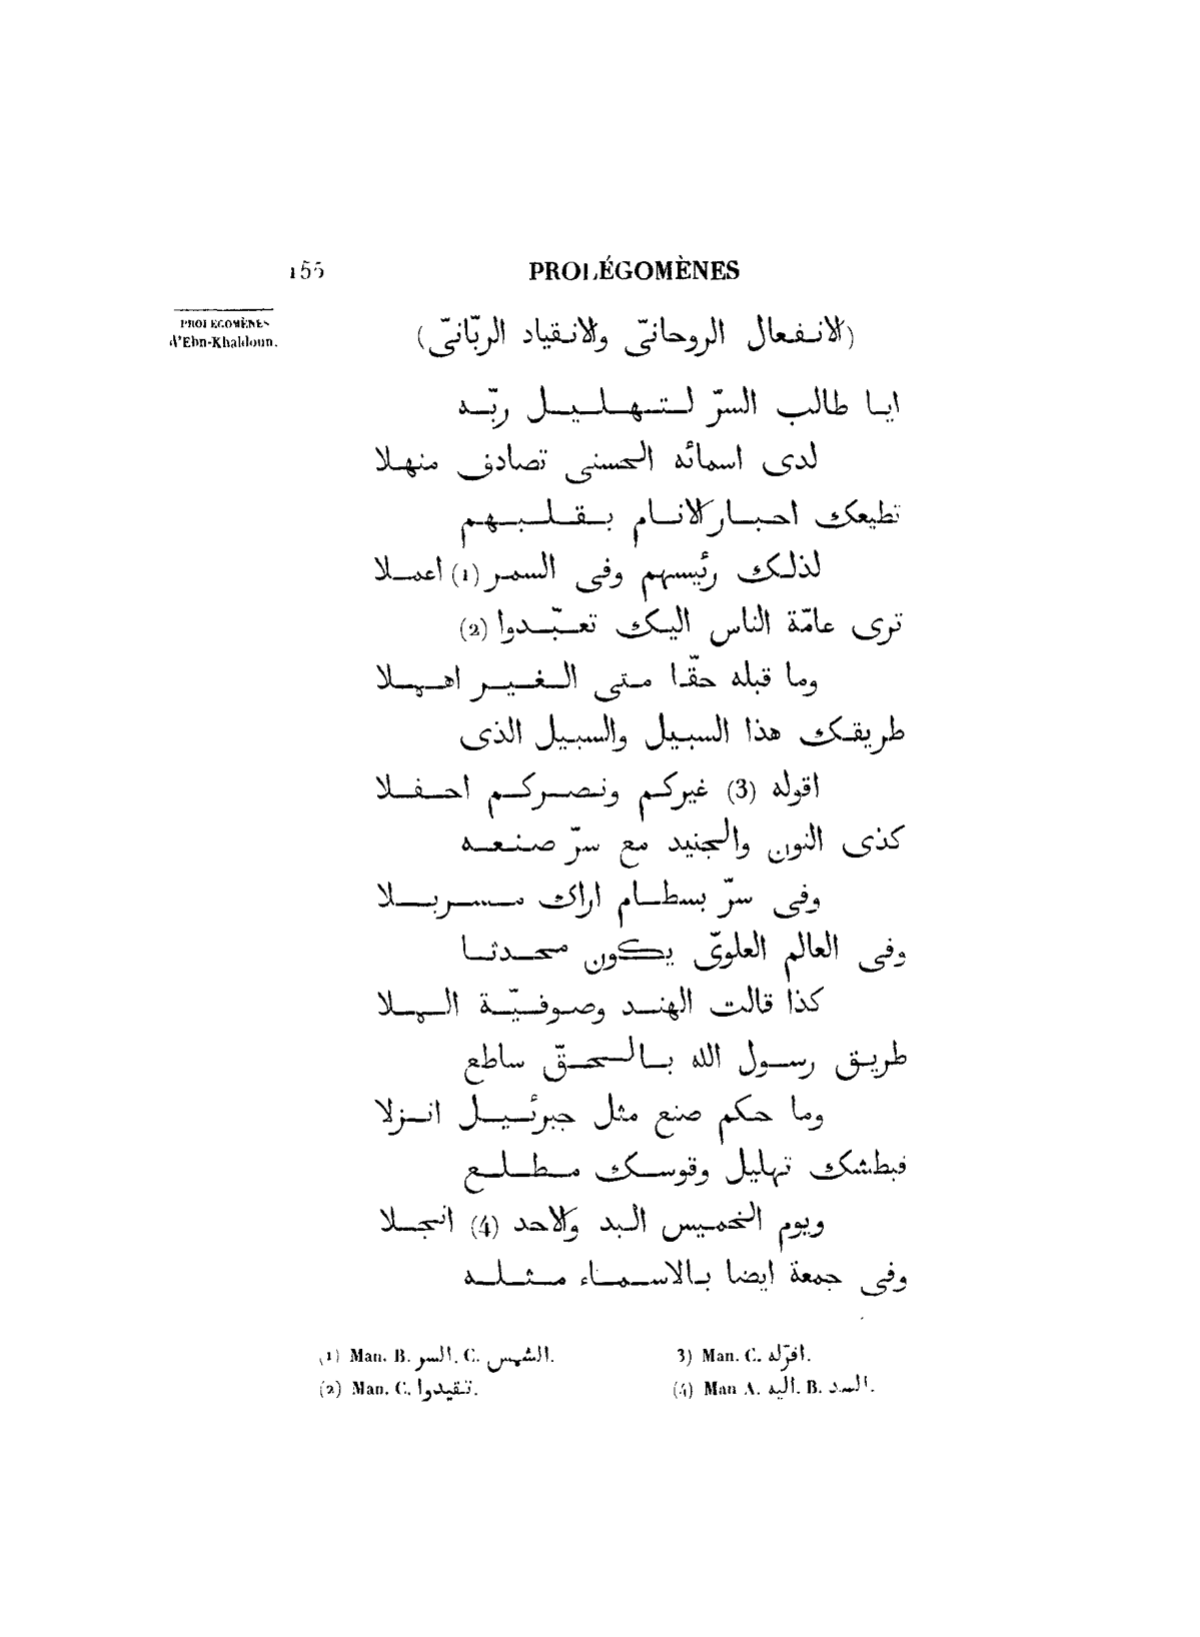 155 PROLÉGOMÈNES
PROLÉGOMÈNES
d'Ebn-Khaldoun.
(الانفعال الروحانىّ والانقياد الربّانىّ)
ايا طالب السرّ لتهليل ربّه
لدى اسمائه الحسنى تصادف منهلا
تطيعك احبار الانام بقلبهم
لذلك رئيسهم وفى السمر (1) اعملا
ترى عامّة الناس اليك تعبّدوا (2)
وما قبله حقّا متى الغير اهملا
طريقك هذا السبيل والسبيل الذى
اقوله (3) غيركم ونصركم احفلا
كذى النون والجنيد مع سرّ صنعه
وفى سرّ بسطام اراك مسربلا
وفى العالم العلوىّ يكون محدثا
كذا قالت الهند وصوفيّة الهلا
طريق رسول الله بالحقّ ساطع
وما حكم صنع مثل جبرئيل انزلا
فبطشك تهليل وقوسك مطلع
ويوم الخميس البد والاحد (4) انجلا
وفى جمعة ايضا بالاسماء مثله
(1) Man. B. السر. C. الشمس.
(2) Man. C. تقيدوا.
3) Man. C. اقرّله.
(4) Man A. اليه. B. السد.